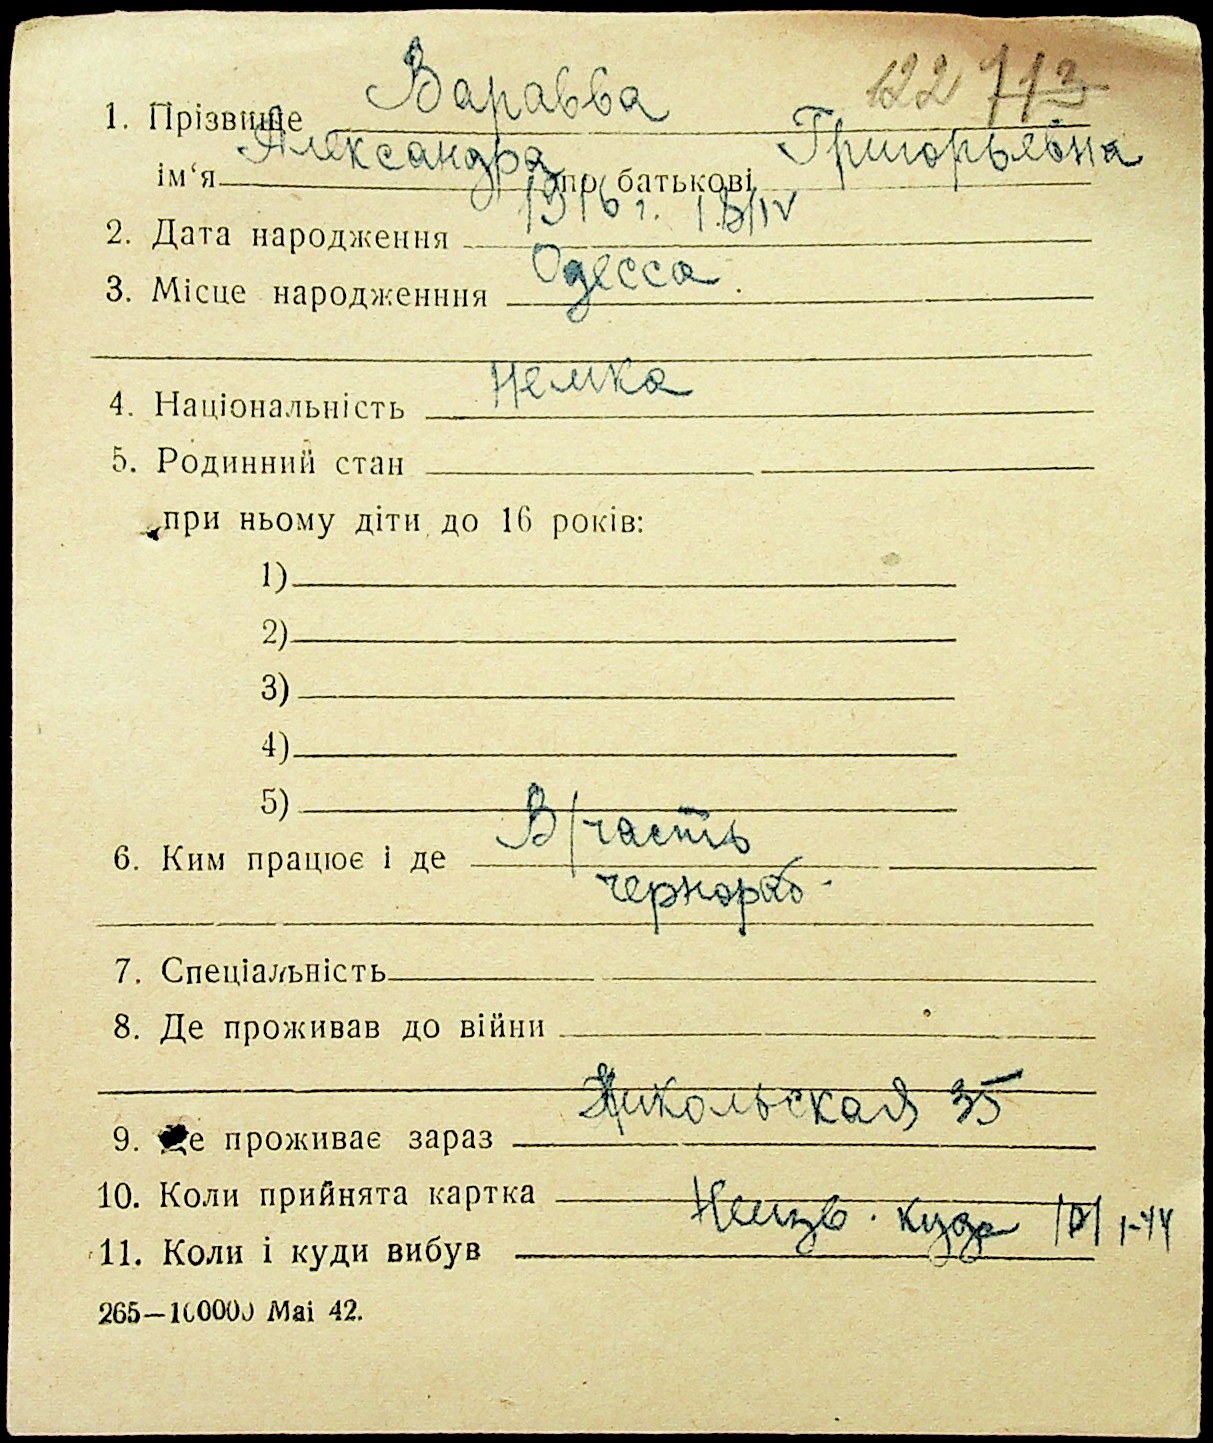 122 713
Варавва
1. Прізвище
Александра Григорьевна
ім‘я по батькові
1916 г. 13/IV
2. Дата народження
Одесса
3. Місце народженння
Немка
4. Національність
5. Родинний стан
при ньому діти до 16 років:
1)
2)
3)
4)
5)
В/часть
6. Ким працює і де
чернораб.
7. Спеціальність
8. Де проживав до війни
Никольская 35
9. Де проживає зараз
10. Коли прийнята картка
Неизв. куда I-44
11. Коли і куди вибув
265—100000 Mai 42.